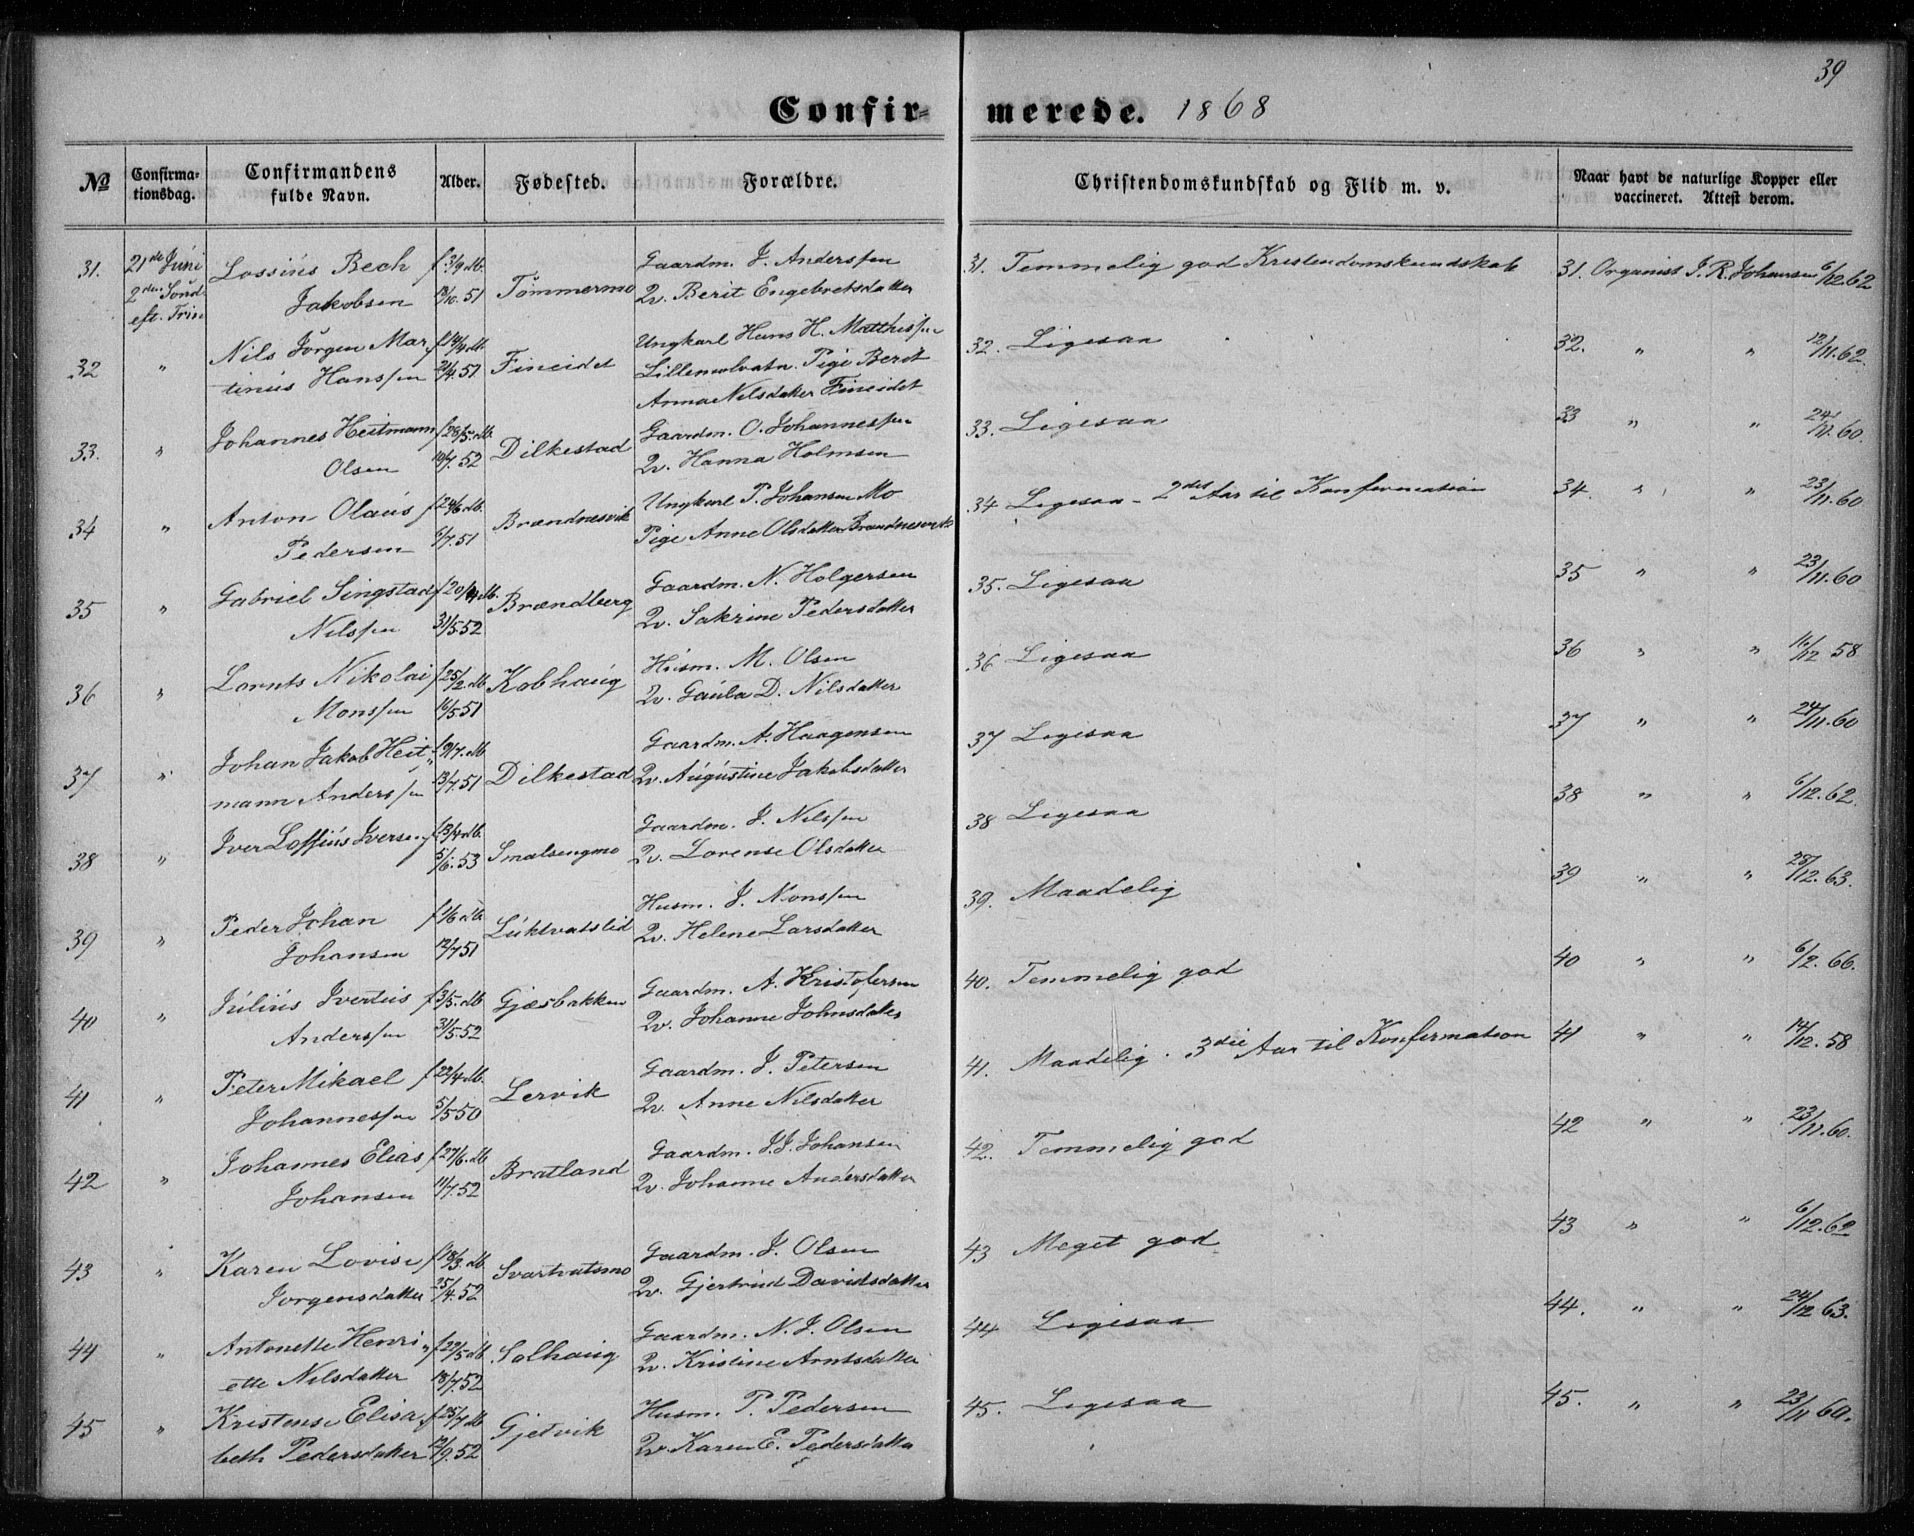 39
Confirmerede. 1868
No
Confirmationsdag.
Confirmandens fulde Navn.
Alder.
Fødested.
Forældre.
Christendomskundskab og Flid m. v.
Naar havt de naturlige Kopper eller vaccineret. Attest derom.
31. 21de Juni 2den Sønd. eft. Trin. Lossius Bech Jakobsen f. 3/9. db. 51 Tømmermo Gaardm. J. Anderssen Qv. Berit Engebretsdatter 31. Temmelig god Kristendomskundskab 31. Organist J. R. Johansen 6/12.62
32 " Nils Jørgen Martinus Hanssen f. db. 51 Fineidet Ungkarl Hans H. Matthissen Lillemolvatn. Pige Berit Anna Nilsdatter Fineidet 32. Ligesaa 32. " " 12/11.62.
33. " Johannes Heitmann Olsen f. 28/5. db. 10/7.52 Dilkestad Gaardm. O. Johannessen Qv. Hanna Holmsen 33. Ligesaa 33 " " 24/11.60.
34 " Anton Olaus Pedersen f. 24/6 db. 6/7.51 Brændnesvik Ungkarl P. Johansen Mo Pige Anne Olsdatter Brændnesvik 34 Ligesaa - 2det Aar til Konfirmation 34. " " 23/11.60
35 " Gabriel Singstad Nilssen f. 20/4 db. 31/5.52 Brændberg Gaardm. N. Holgersen Qv. Sakrine Pedersdatter 35. Ligesaa 35 " " 23/11.60
36 " Lornts Nikolai Monssen f. 25/2. db. 16/5.51 Kobhaug Husm. M. Olsen Qv. Gaula D. Nilsdatter 36 Ligesaa 36 " " 16/12 58
37 " Johan Jakob Heitmann Anderssen f. 9/7. db. 13/7.51 Dilkestad Gaardm. A. Haagensen Qv. Augustine Jakobsdatter 37 Ligesaa 37 " " 24/11.60
38 " Iver Loffius Iversen f. 13/4 db. 5/6.53 Smalsengmo Gaardm. J. Nilssen Qv. Lorense Olsdatter 38 Ligesaa 38 " " 6/12.62.
39 " Peder Johan Johansen f. 1/6 db. 12/7 51 Luktvatslid Husm. J. Nonssen Qv. Helene Larsdatter 39. Maadelig 39 " " 28/12.63.
40 " Julius Ivertus Anderssen f. 3/5. db. 31/5.52 Gjæsbakken Gaardm. A. Kristofersen Qv. Johanne Johnsdatter 40. Temmelig god 40 " " 6/2.66.
41 " Peter Mikael Johannessen f. 22/4 db. 5/5 50 Lervik Gaardm. J. Petersen Qv. Anne Nilsdatter 41. Maadelig. 3die Aar til Konfirmation 41 " " 14/12.58
42 " Johannes Elias Johansen f. 27/6. db. 11/7.52 Bratland Gaardm. J. J. Johansen Qv. Johanne Andersdatter 42. Temmelig god 42 " " 23/11.60.
43 " Karen Lovise Jorgensdatter f. 18/3. db. 25/4.52 Svartvatsmo Gaardm. J. Olsen Qv. Gjertrud Davidsdatter 43 Meget god 43 " " 6/12.62
44 " Antonette Henriette Nilsdatter f. 22/5 db. 18/7.52 Solhaug Gaardm. N. J. Olsen Qv. Kristine Arntsdatter 44 Ligesaa 44. " " 24/12 63.
45 " Kristense Elisabeth Pedersdatter f. 25/7 db. 12/9.52 Gjetvik Husm. P. Pedersen Qv. Karen E. Pedersdatter 45. Ligesaa 45. " " 23/11 60.